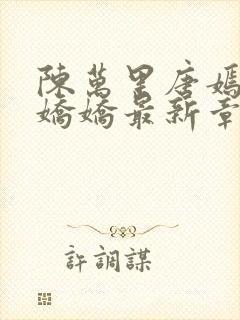 陳萬里唐嫣
嬌嬌最新章
許調謀